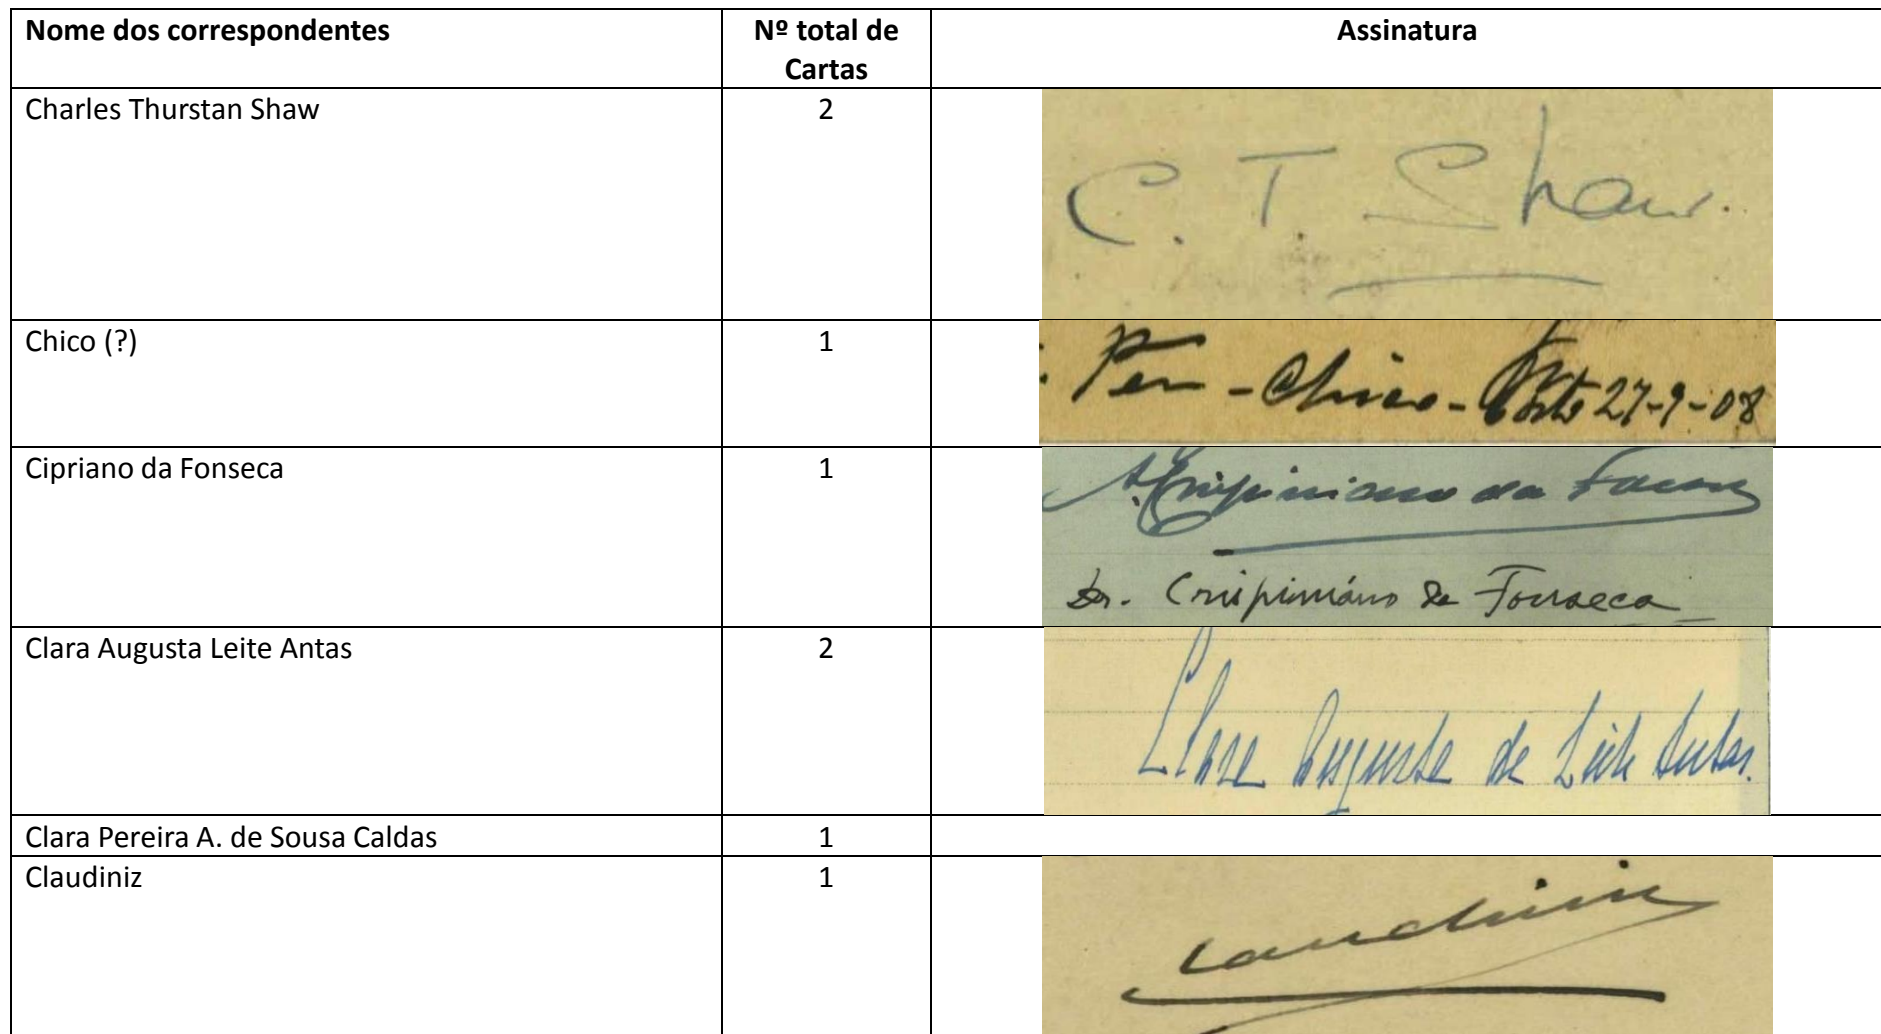 Nome dos correspondentes Nº total de Cartas Assinatura
Charles Thurstan Shaw 2
C. T. Shaw.
Chico (?) 1
- Chico - Porto 27-9-08
Cipriano da Fonseca 1
A. Crispiniano da Fonseca
Dr. Crispiniáno da Fonseca
Clara Augusta Leite Antas 2
Clara Augusta de Leite Antas.
Clara Pereira A. de Sousa Caldas 1
Claudiniz 1